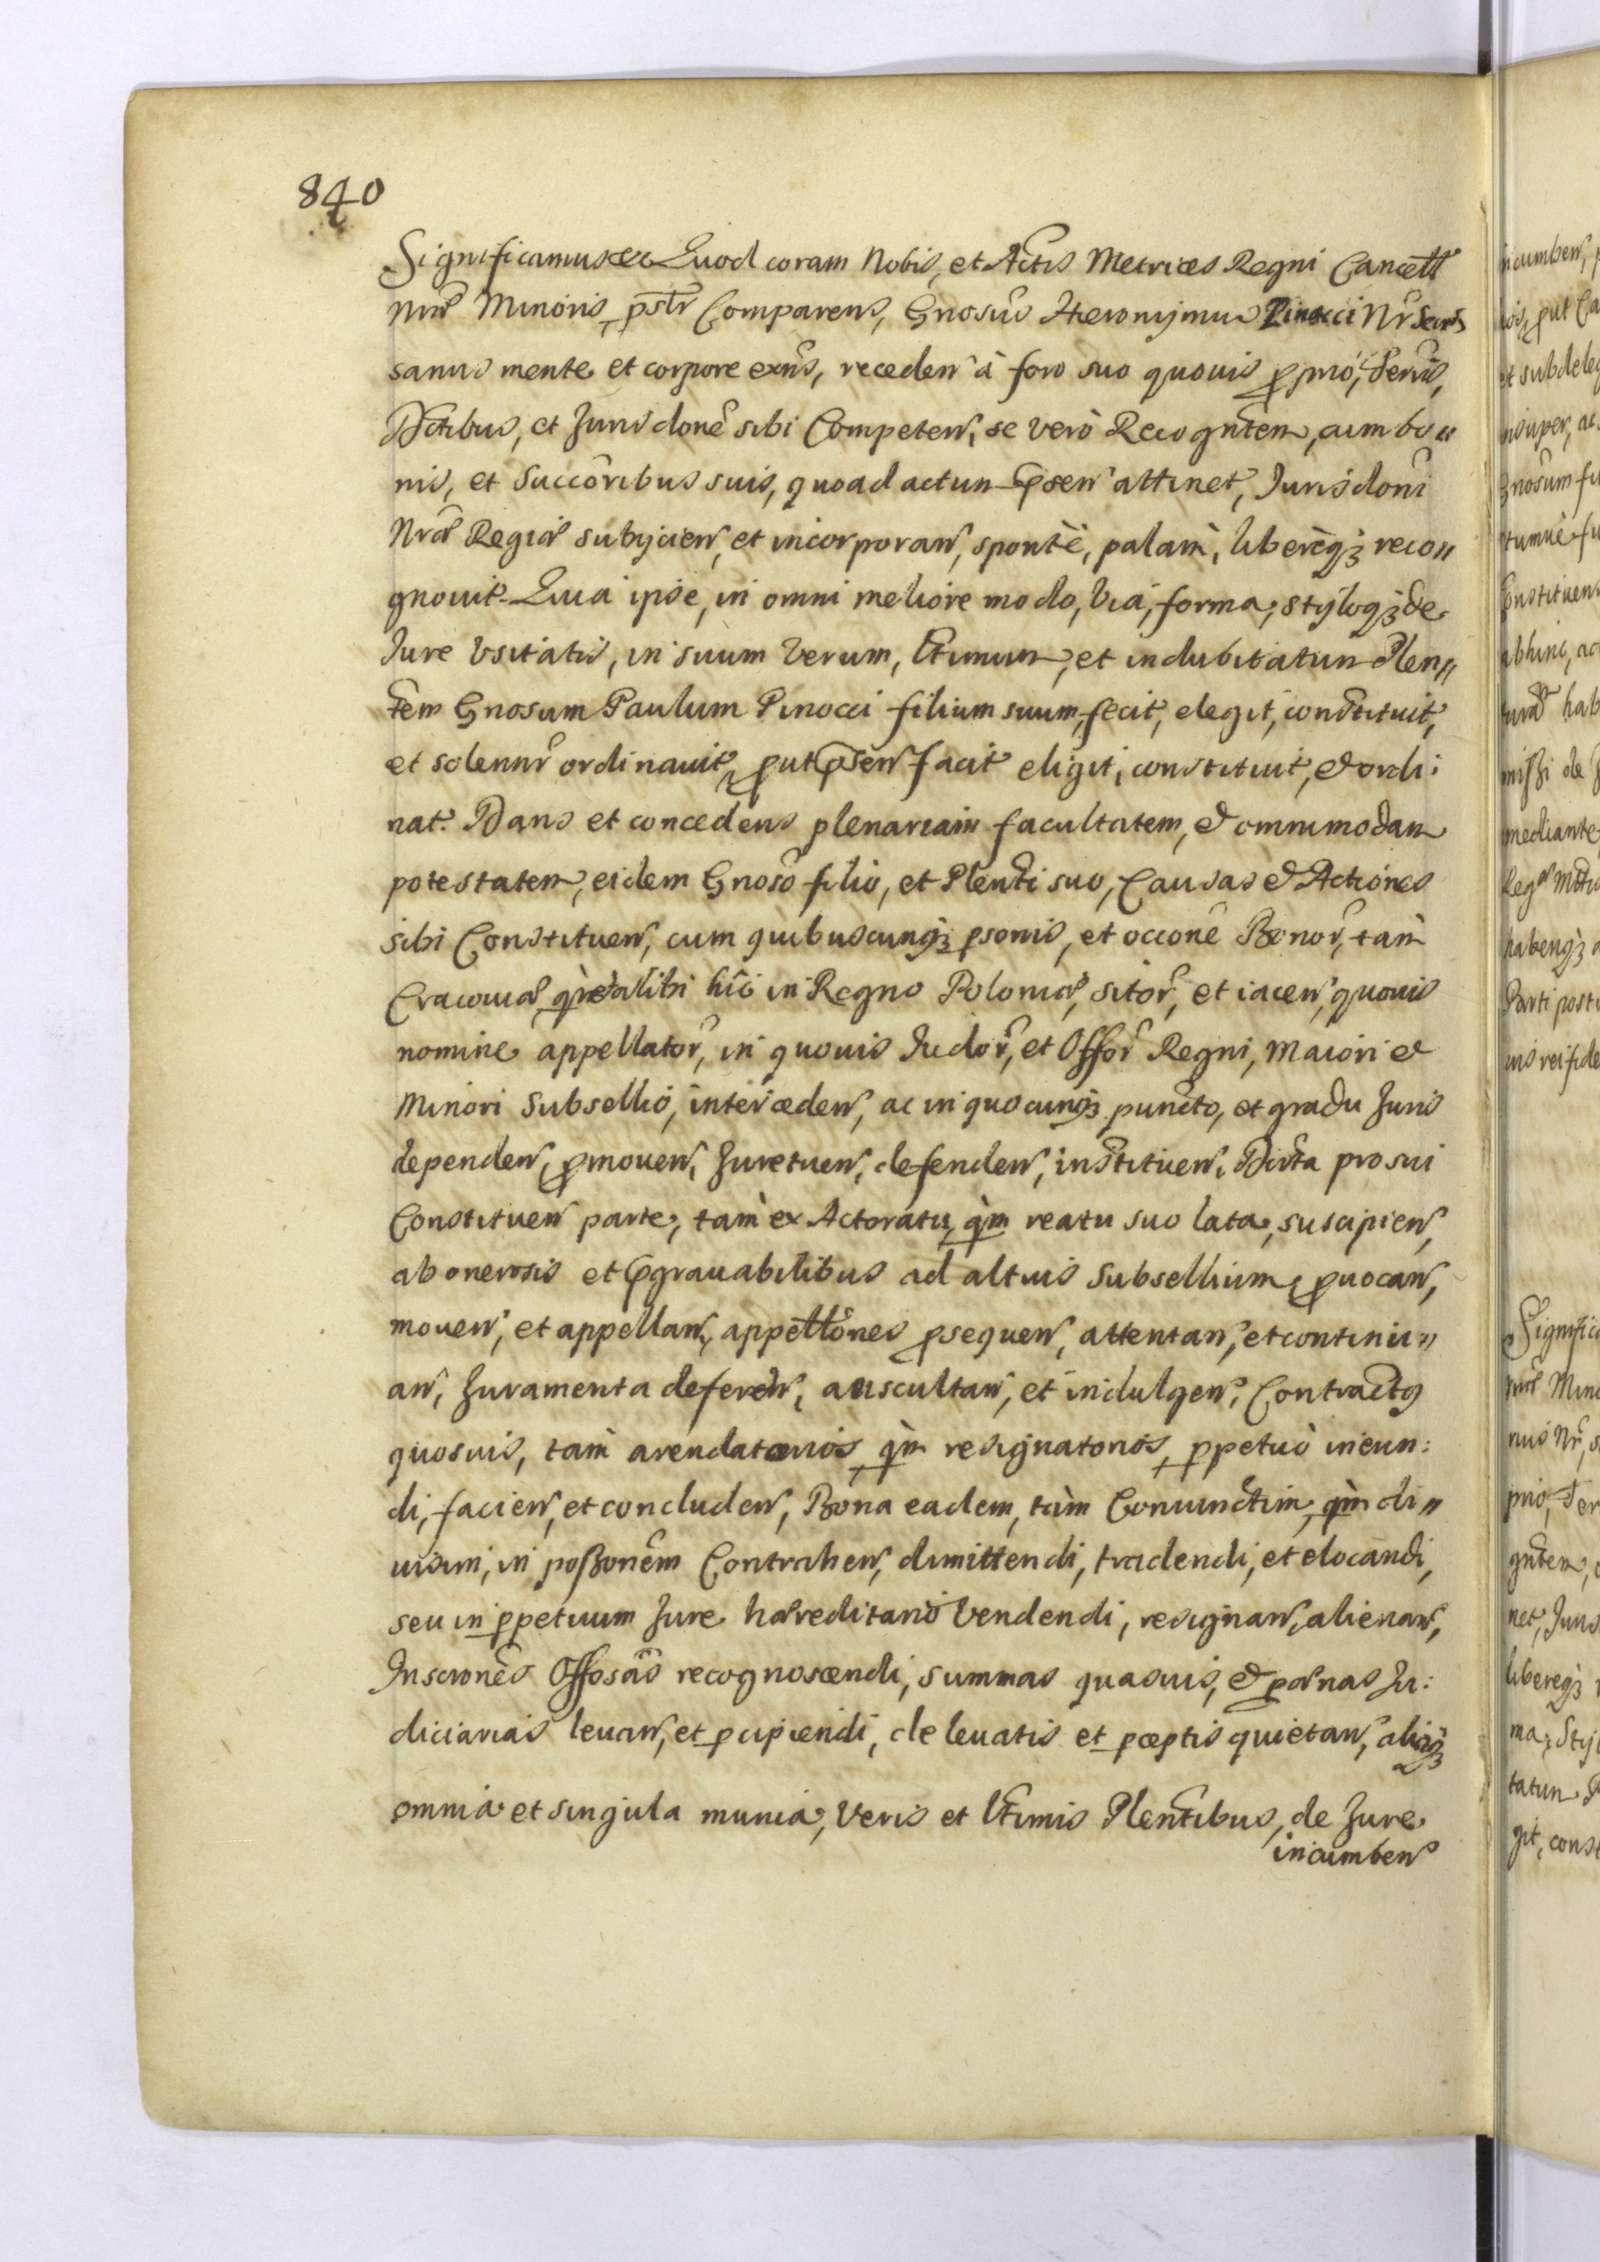 840
Significamus etc Quod coram Nobis, et Actis Metrices Regni Cancell
Nræ Minoris, pstr Comparens, Gnosus Hieronymus Pinocci Nr Secrs
sanus mente et corpore exns, receden à foro suo quouis pprio, Terris,
Dctibus, et Jurisdone sibi Competen, se verò Recogntem, cum bo„
nis, et Succoribus suis, quoad actum psen attinet, Jurisdoni
Nræ Regiæ subijcien, et incorporan, spontè, palam, liberèq3 reco„
gnouit. Quia ipse, in omni meliore modo, via, forma, styloq3 de
Jure vsitatis, in suum verum, ltimum, et indubitatum Plen„
tem Gnosum Paulum Pinocci filium suum, fecit, elegit, constituit,
et solennr ordinauit, put psen facit eligit, constituit, et ordi:
nat. Dans et concedens plenariam facultatem, et omnimodam
potestatem, eidem Gnoso filio, et Plenti suo, Causas et Actiones
sibi Constituen, cum quibuscunq3 psonis, et occone Bonor, tàm
Cracouiæ qm et alibi hic in Regno Poloniæ, sitor, et iacen, quouis
nomine appellator, in quouis Judor, et Offor Regni, Maiori et
Minori Subsellio, interceden, ac in quocunq3 puncto, et gradu Juris
dependen, pmouen, Juretuen, defenden, instituen, Dicta pro sui
Constituen parte, tàm ex Actoratu, qm reatu suo lata, suscipien,
ab onerosis et pgrauabilibus ad altius Subsellium, puocan,
mouen, et appellan, appellones psequen, attentan, et continu„
an, Juramenta deferen, auscultan, et indulgen, Contractg
quosuis, tàm arendatorios, qm resignatorios, ppetuò ineun:
di, facien, et concluden, Bona eadem, tàm Coniunctim, qm di„
uisim, in possonem Contrahen, dimittendi, tradendi, et elocandi,
seu in ppetuum Jure hæreditario vendendi, resignan, alienan,
Inscrones Offosas recognoscendi, summas quasuis, et pænas Ju:
diciarias leuan, et pcipiendi, de leuatis et pceptis quietan, aliaq3
omnia et singula munia, veris et ltimis Plentibus, de Jure
incumben